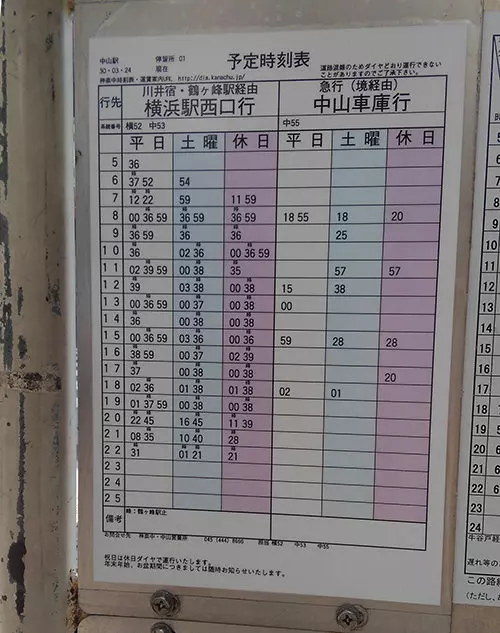 中山駅 停留所 01
30・03・24 現在
予定時刻表
道路混雑のためダイヤどおり運行できない
ことがありますのでご了承下さい。
神奈中時刻表・運賃案内URL http://dia.kanachu.jp/
行先 川井宿・鶴ヶ峰駅経由 急行（境経由）
横浜駅西口行 中山車庫行
系統番号 横52 中53 中55
平日 土曜 休日 平日 土曜 休日
5 36
6 37 52 54
7 12 22 59 11 59
8 00 36 59 36 59 36 59 18 55 18 20
9 36 59 36 36 25
10 36 02 36 00 36 59
11 02 39 59 00 38 35 57 57
12 39 03 38 00 38 15 38
13 00 36 59 00 37 00 38 00
14 36 00 38 00 38
15 00 36 59 03 36 00 36 59 28 28
16 38 59 00 37 02 39
17 37 00 38 00 38 20
18 02 36 01 38 01 38 02 01
19 01 37 59 00 38 00 38
20 22 45 16 45 11 39
21 08 35 10 40 28
22 31 01 21 21
23
24
25
備考 峰：鶴ヶ峰駅止
お問合せ先 神奈中・中山営業所 045 (444) 8660 担当 横52 中53 中55
祝日は休日ダイヤで運行いたします。
年末年始、お盆期間につきましては随時お知らせいたします。
8
9
10
11
12
13
14
15
16
17
18
19
20
21
22
23
24